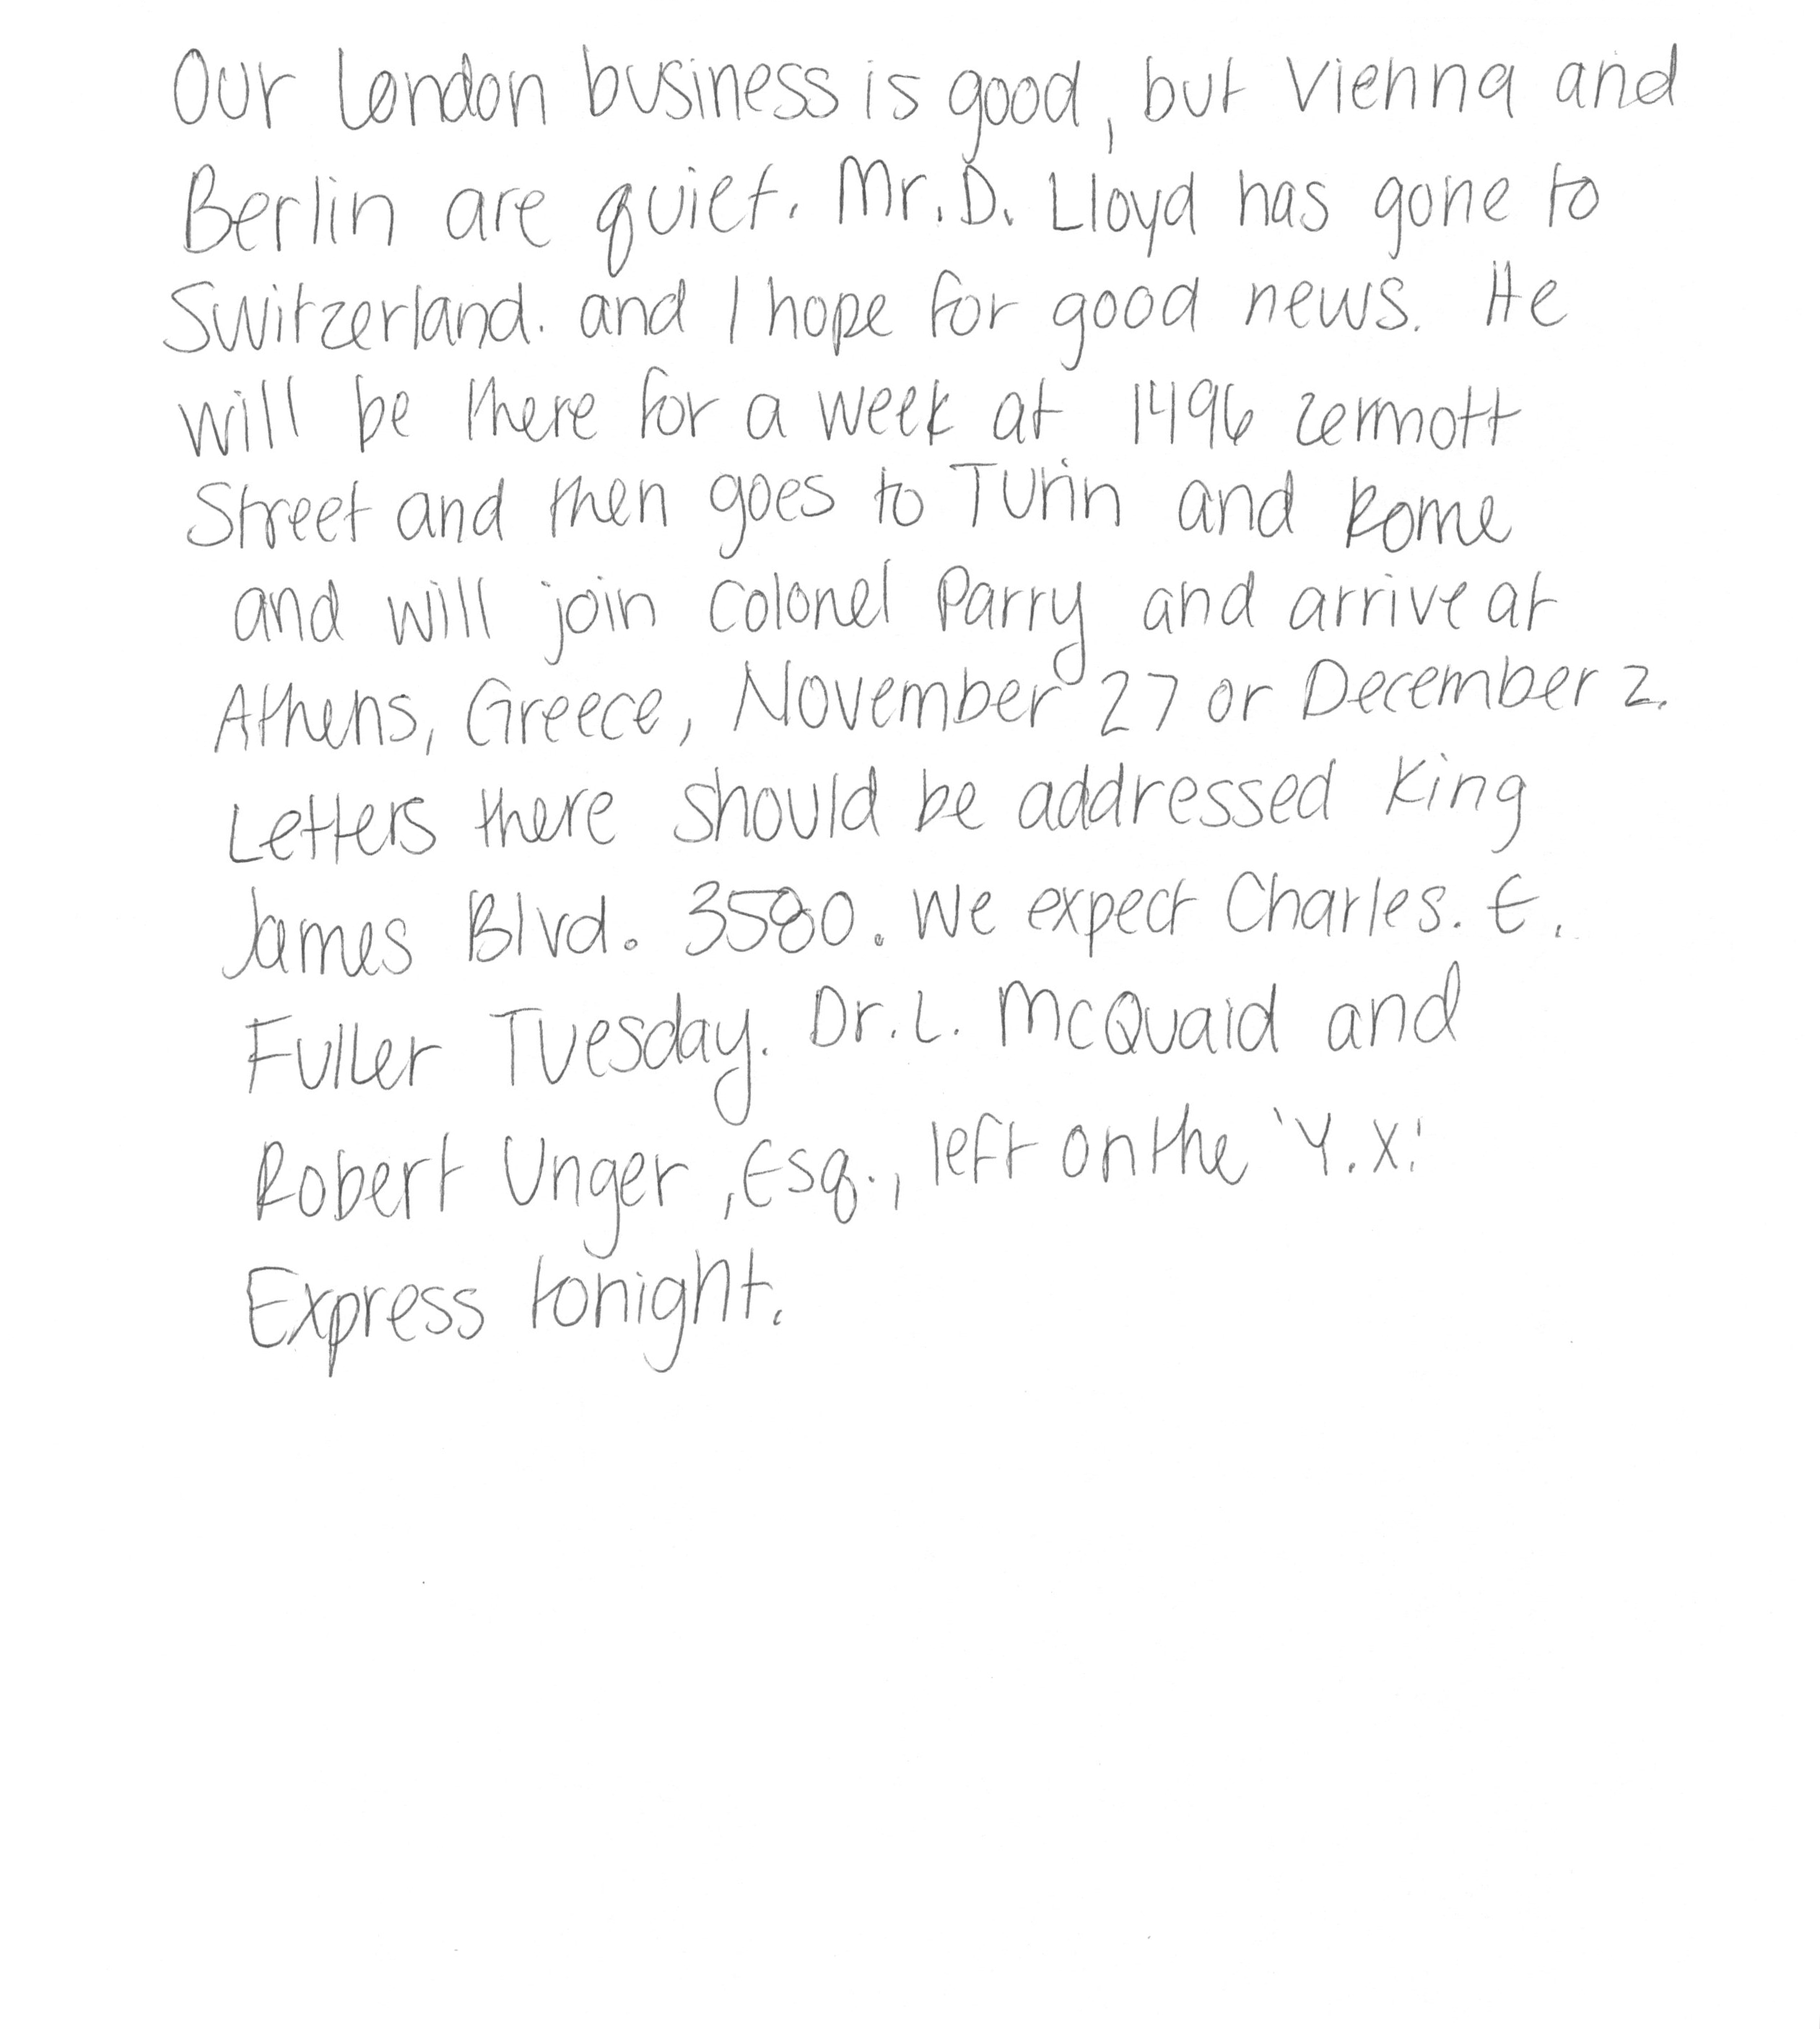 Our London business is good, but Vienna and
Berlin are quiet. Mr. D. Lloyd has gone to
Switzerland. and I hope for good news. He
will be there for a week at 1496 zermott
Street and then goes to Turin and Rome
and will join Colonel Parry and arrive at
Athens, Greece, November 27 or December 2.
Letters there should be addressed King
James Blvd. 3580. We expect Charles. E.
Fuller Tuesday. Dr. L. McQuaid and
Robert Unger, Esq., left on the 'Y.X.'
Express tonight.